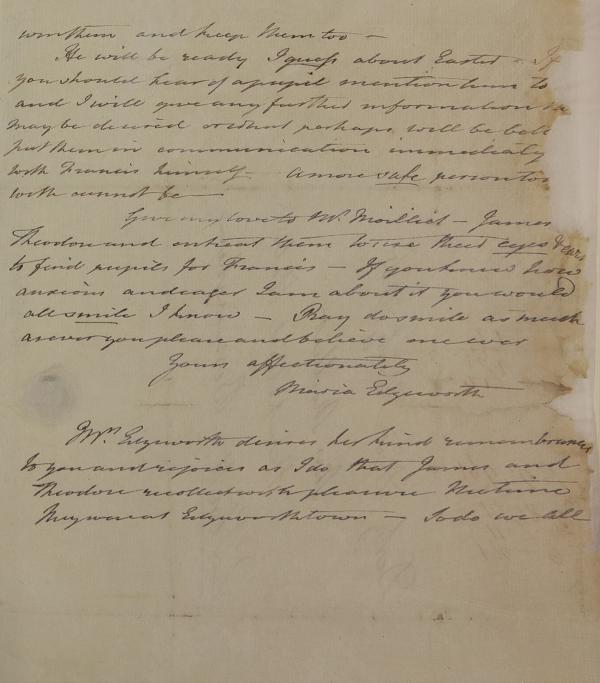 win them and keep them too –
He will be ready I guess about Easter – If
you should hear of a pupil mention him to
and I will give any further information
may be desired or what perhaps will be bett
put them in communication immediately
with Francis himself – a more safe person to
with cannot be –
Give my love to Mr. Moilliet – James
Theodore and entreat them to use their eyes & ears
to find pupils for Francis – If you knew how
anxious and eager I am about it you would
all smile I know – Pray do smile as much
as ever you please and believe me ever
Yours affectionately
Maria Edgeworth
Mrs. Edgeworth desires her kind remembrances
to you and rejoices as I do that James and
Theodore recollect with pleasure the time
they were at Edgeworthstown – So do we all